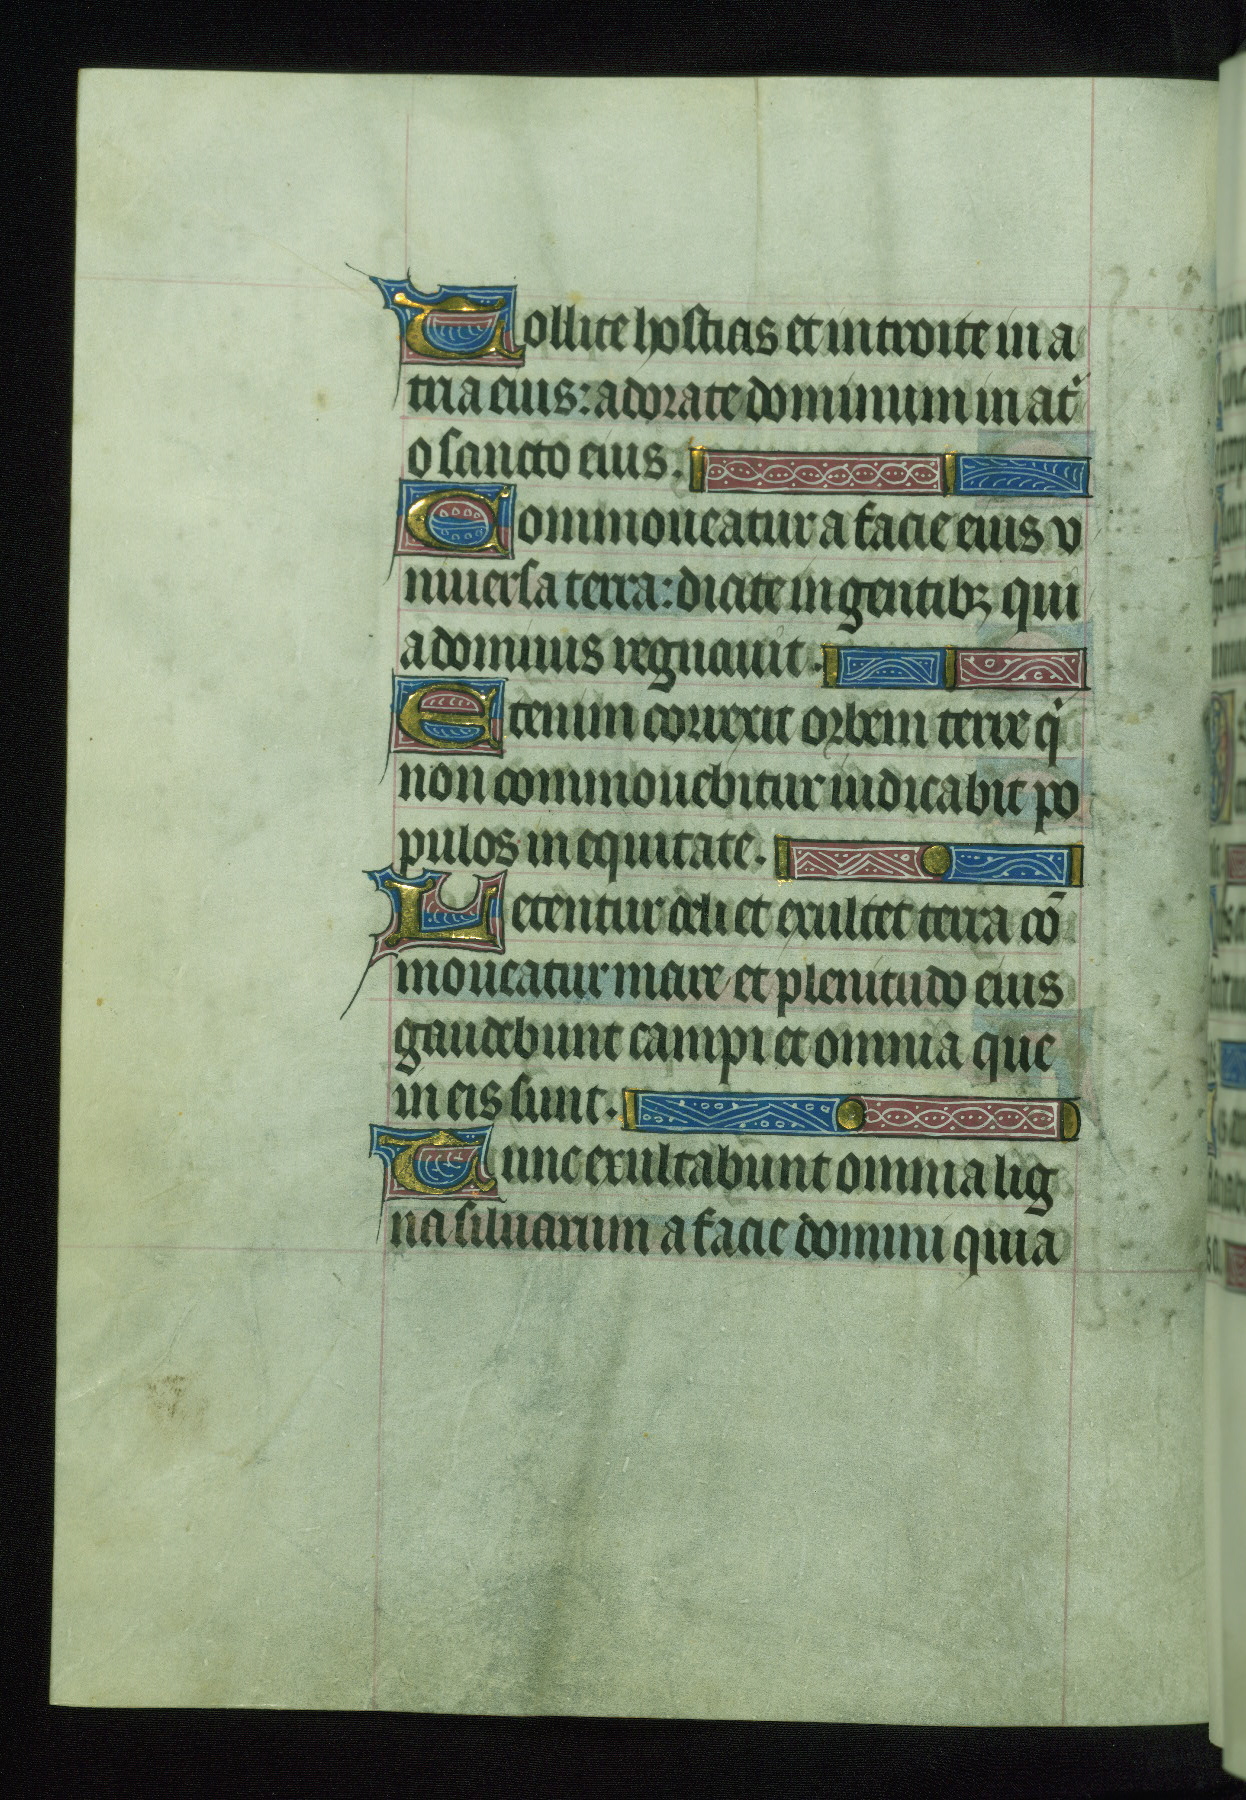 Tollite hostias et introite in a
tria eius: adorate dominum in atˈ
o sancto eius.
Commoueatur a facie eius v
niuersa terra: dicite in gentibꝫ qui
a dominus regnauit.
Etenim correxit orbem terre qͥ
non commouebitur iudicabit po
pulos in equitate.
Letentur celi et exultet terra cō
moueatur mare et plenitudo eius
gaudebunt campi et omnia que
in eis sunt.
Tunc exultabunt omnia lig
na siluarum a facie domini quia